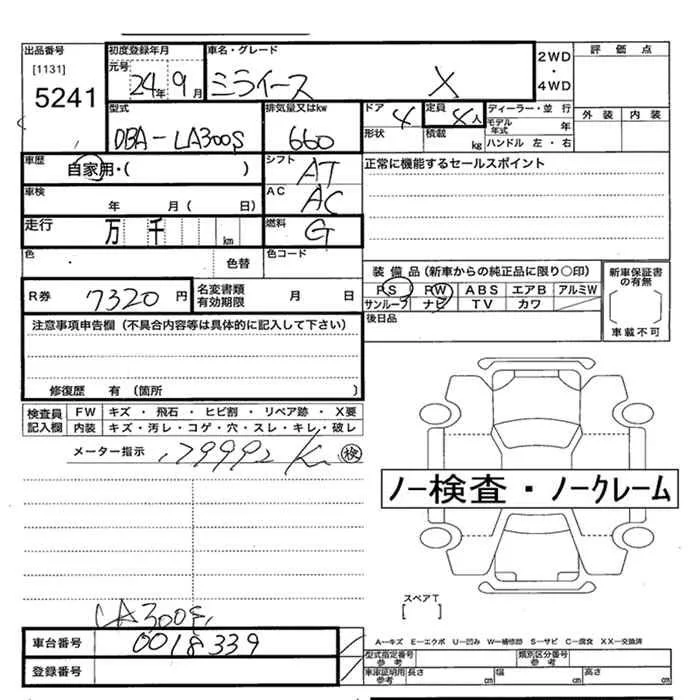 出品番号 初度登録年月 車名・グレード 2WD 評価点
[1131] 元号 ・
5241 24年 9月 ミライース X 4WD
外装 内装
型式 排気量又はkw ドア 4 定員 4人 ディーラー・並行
DBA-LA300S 660 形状 積載 kg モデル年式 年
ハンドル 左・右
車歴 自家用・( ) シフト AT 正常に機能するセールスポイント
車検 年 月( 日) AC AC
走行 万 千 km 燃料 G
色 色替 色コード
装備品(新車からの純正品に限り○印) 新車保証書の有無
R券 7320円 名変書類有効期限 月 日 PS PW ABS エアB アルミW
サンルーフ ナビ TV カワ
注意事項申告欄(不具合内容等は具体的に記入して下さい) 後日品 車載不可
修復歴 有(箇所 )
検査員記入欄 FW キズ・飛石・ヒビ割・リペア跡・X要
内装 キズ・汚レ・コゲ・穴・スレ・キレ・破レ
メーター指示 79992 Km 検
ノー検査・ノークレーム
スペアT
[ ]
LA300S
車台番号 0018339 A－キズ E－エクボ U－凹み W－補修跡 S－サビ C－腐食 XX－交換済
型式指定番号 参考 類別区分番号 参考
登録番号 車庫証明用 参考 長さ cm 幅 cm 高さ cm